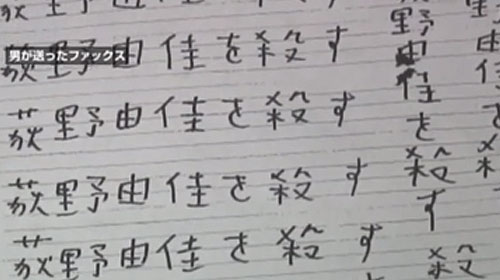 男が送ったファックス
荻野由佳を殺す
荻野由佳を殺す
荻野由佳を殺す
荻野由佳を殺す
野由佳を殺す